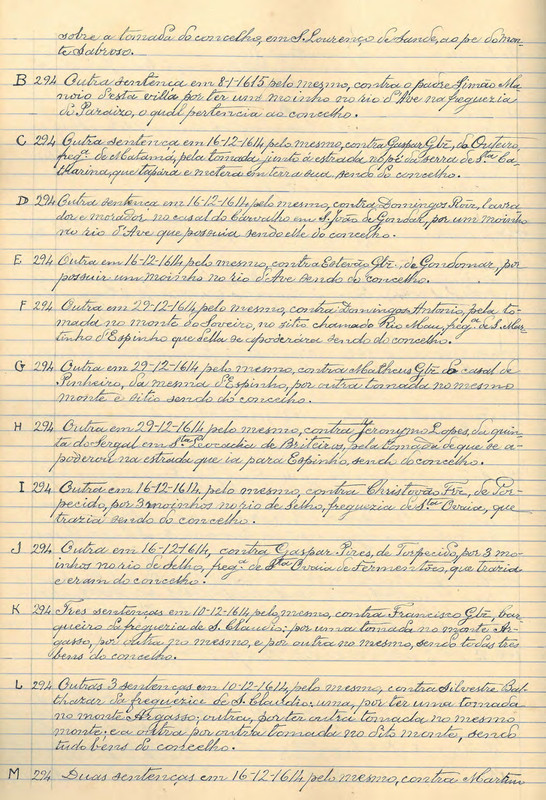 sobre a tomada do concelho, em S. Lourenço de Sande, ao pé do mon-
te Sabroso.
B 294 Outra sentença em 8-1-1615 pelo mesmo, contra o padre Simão Ma-
noio d'esta villa por ter um moinho no rio d'Ave na freguezia
do Paraizo, o qual pertencia ao concelho.
C 294 Outra sentença em 16-12-1614, pelo mesmo, contra Gaspar Glz, do Outeiro,
freg.ª de Matamá, pela tomada junto á estrada no pé da serra de Sta Ca-
tharina, que tapára e metera em terra sua, sendo do concelho.
D 294 Outra sentença em 16-12-1614, pelo mesmo, contra Domingos Roiz, lavra
dor e morador no casal do Carvalho em S. João de Gondar, por um moinho
no rio d'Ave que possuia sendo elle do concelho.
E 294 Outra em 16-12-1614 pelo mesmo, contra Estevão Glz, de Gondomar, por
possuir um moinho no rio d'Ave sendo do concelho.
F 294 Outra em 29-12-1614, pelo mesmo, contra Domingos Antonio, pela to-
mada no monte do Loreiro, no sitio chamado Rio Mau, freg.ª de S. Mar-
tinho d'Espinho que della se apoderára sendo do concelho.
G 294 Outra em 29-12-1614 pelo mesmo, contra Matheus Glz do casal de
Pinheiro, da mesma d'Espinho, por outra tomada no mesmo
monte e sitio sendo do concelho.
H 294 Outra em 29-12-1614 pelo mesmo, contra Jeronymo Lopes, da quin-
ta do Sergal em Sta Leocadia de Briteiros, pela tomada de que se a-
poderou na estrada que ia para Espinho, sendo do concelho.
I 294 Outra em 16-12-1614, pelo mesmo, contra Christovão Frz, de Por-
pecido, por 3 moinhos no rio de Selho, freguezia de Sta Ovaia, que
trazia sendo do concelho.
J 294 Outra em 16-12-1614, contra Gaspar Pires, de Torpecido, por 3 mo-
inhos no rio de Selho, freg.ª de Sta Ovaia de Fermentões, que trazia
e eram do concelho.
K 294 Tres sentenças em 10-12-1614, pelo mesmo, contra Francisco Glz, bar-
queiro da freguezia de S. Claudio; por uma tomada no monte Ar-
gasso, por outra no mesmo, e por outra no mesmo, sendo todas tres
bens do concelho.
L 294 Outras 3 sentenças em 10-12-1614, pelo mesmo, contra Silvestre Bal-
thazar da freguezia de S. Claudio: uma, por ter uma tomada
no monte Argasso; outra, por ter outra tomada no mesmo
monte; e a outra por outra tomada no dito monte, sendo
tudo bens do concelho.
M 294 Duas sentenças em 16-12-1614 pelo mesmo, contra Martim